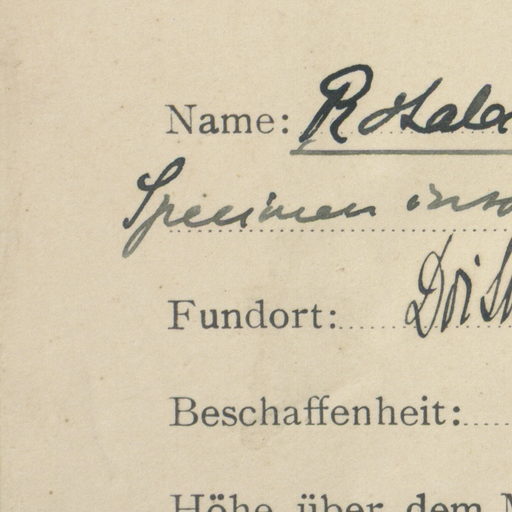 Name: Rotala
Specimen
Fundort: Doi
Beschaffenheit:
Höhe über dem M